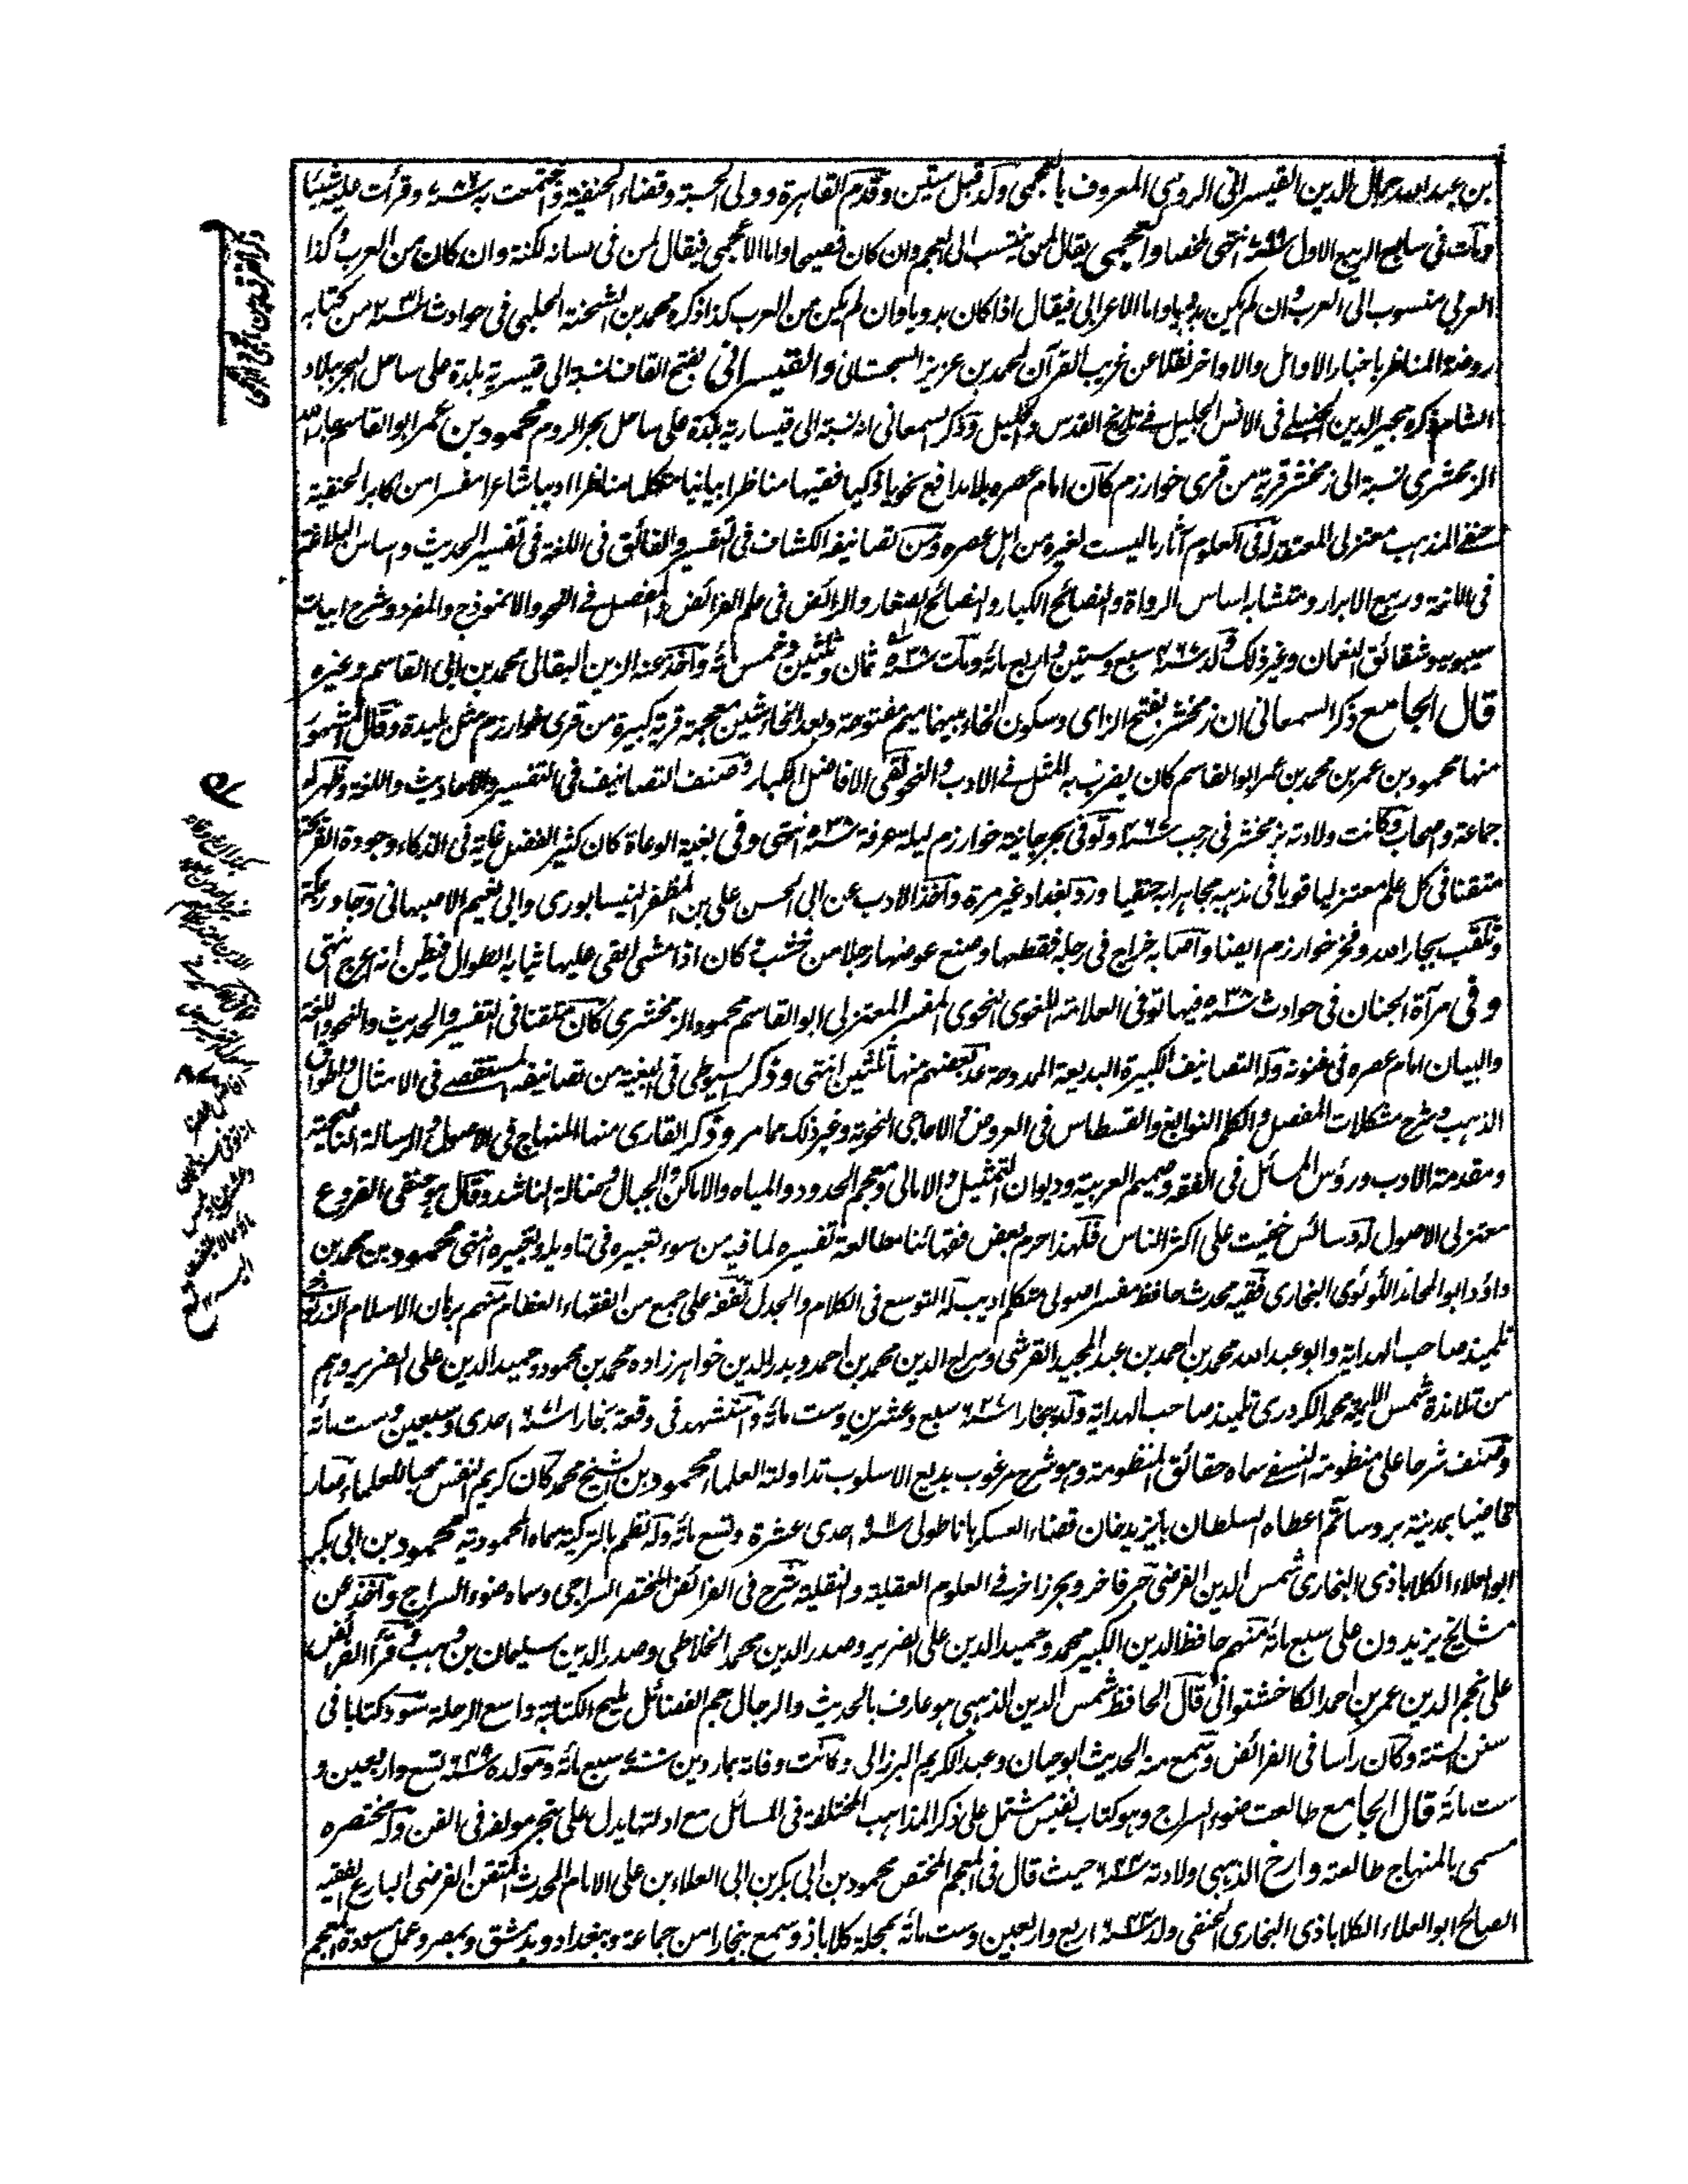 بن عبد الله جمال الدين القيسراني الرومي المعروف بالعجمي ولد قبل ستين وقدم القاهرة وولي الحسبة وقضاء الحنفية واجتمعت به سنة ٧٨٦ وقرأت عليه شيئا
ومات في سابع الربيع الاول سنة ٧٩٩ انتهى ملخصا والعجمي يقال لمن ينتسب الى العجم وان كان فصيحا واما الاعجمي فيقال لمن في لسانه لكنة وان كان من العرب وكذا
العربي منسوب الى العرب وان لم يكن بدويا واما الاعرابي فيقال اذا كان بدويا وان لم يكن من العرب كذا ذكره محمد بن الشحنة الحلبي في حوادث من كتابه
روضة المناظر باخبار الاوائل والاواخر نقلا عن غريب القرآن لمحمد بن عزيز السجستاني والقيسراني بفتح القاف نسبة الى قيسرية بلدة على ساحل البحر ببلاد
الشام ذكره مجير الدين الحنبلي في الانس الجليل في تاريخ القدس والخليل وذكر السمعاني انه نسبة الى قيسارية بلدة على ساحل بحر الروم محمود بن عمر ابو القاسم جار الله
الزمخشري نسبة الى زمخشر قرية من قرى خوارزم كان امام عصره بلا مدافع نحويا ذكيا فقيها مناظرا بيانيا متكلما مناظرا اديبا شاعرا مفسرا من اكابر الحنفية
حنفي المذهب معتزلي المعتقد له في العلوم آثار ما ليست لغيره من اهل عصره ومن تصانيفه الكشاف في التفسير والفائق في اللغة في تفسير الحديث واساس البلاغة
في اللغة وربيع الابرار ومتشابه اساس الرواة والنصائح الكبار والنصائح الصغار والرائض في علم الفرائض والمفصل في النحو والانموذج والمفرد وشرح ابيات
سيبويه وشقائق النعمان وغير ذلك ولد سنة ٤٦٧ سبع وستين واربع مائة ومات سنة ٥٣٨ ثمان وثلثين وخمس مائة واخذ عنه الزين البقالي محمد بن ابي القاسم وغيره
قال الجامع ذكر السمعاني ان زمخشر بفتح الزاى وسكون الخاء بينهما ميم مفتوحة وبعد الخاء شين معجمة قرية كبيرة من قرى خوارزم مثل بليدة وقال المشهور
منها محمود بن عمر بن محمد بن عمر ابو القاسم كان يضرب به المثل في الادب والنحو لقي الافاضل الكبار وصنف التصانيف في التفسير والاحاديث واللغة وظهر له
جماعة واصحاب وكانت ولادته بزمخشر في رجب سنة ٤٦٧ وتوفي بجرجانية خوارزم ليلة عرفة سنة ٥٣٨ انتهى وفي بغية الوعاة كان كثير الفضل غاية في الذكاء وجودة القريحة
متقنا في كل علم معتزليا قويا في مذهبه مجاهرا به حنفيا ورد بغداد غير مرة واخذ الادب عن ابي الحسن علي بن المظفر النيسابوري وابي نعيم الاصبهاني وجاور بمكة
وتلقب بجار الله وفخر خوارزم ايضا واصابه خراج في رجله فقطعها وصنع عوضها رجلا من خشب وكان اذا مشى القى عليها ثيابه الطوال فيظن انه اعرج انتهى
وفي مرآة الجنان في حوادث سنة ٥٣٨ فيها توفي العلامة اللغوي النحوي المفسر المعتزلي ابو القاسم محمود الزمخشري كان متقنا في التفسير والحديث والنحو واللغة
والبيان امام عصره في فنونه وله التصانيف الكبيرة البديعة الممدوحة عد بعضهم منها ثلثين انتهى وذكر السيوطي في البغية من تصانيفه المستقصى في الامثال واطواق
الذهب وشرح مشكلات المفصل والكلم النوابغ والقسطاس في العروض والاحاجي النحوية وغير ذلك مما مر وذكر القاري منها المنهاج في الاصول والرسالة الناصحة
ومقدمة الادب ورؤس المسائل في الفقه وصميم العربية وديوان التمثيل والامالي ومعجم الحدود والمياه والاماكن والجبال وضالة الناشد وقال هو حنفي الفروع
معتزلي الاصول له دسائس خفيت على اكثر الناس فلهذا حرم بعض فقهائنا مطالعة تفسيره لما فيه من سوء تعبيره في تاويله وتعبيره انتهى محمود بن محمد بن
داؤد ابو المحامد اللؤلؤي البخاري فقيه محدث حافظ مفسر اصولي متكلم اديب له التوسع في الكلام والجدل تفقه على جمع من الفقهاء العظام منهم برهان الاسلام الزرنوجي
تلميذ صاحب الهداية وابو عبد الله محمد بن احمد بن عبد المجيد القرشي وسراج الدين محمد بن احمد وبدر الدين خواهر زاده محمد بن محمود وحميد الدين علي الضرير وهم
من تلامذة شمس الائمة محمد الكردري تلميذ صاحب الهداية ولد ببخارا سنة ٦٢٧ سبع وعشرين وست مائة واستشهد في وقعة بخارا سنة ٦٧١ احدى وسبعين وست مائة
وصنف شرحا على منظومة النسفي سماه حقائق المنظومة وهو شرح مرغوب بديع الاسلوب تداولته العلماء محمود بن الشيخ محمد كان كريم النفس محبا للعلماء صار
قاضيا بمدينة بروسا ثم اعطاه السلطان بايزيد خان قضاء العسكر باناطولي سنة ٩١١ احدى عشرة وتسع مائة وله نظم بالتركية سماه المحمودية محمود بن ابي بكر
ابو العلاء الكلاباذي البخاري شمس الدين الفرضي حبر فاخر وبحر زاخر في العلوم العقلية والنقلية شرح في الفرائض المختصر السراجي وسماه ضوء السراج واخذ عن
مشايخ يزيدون على سبع مائة منهم حافظ الدين الكبير محمد وحميد الدين علي الضرير وصدر الدين محمد الخلاطي وصدر الدين سليمان بن وهب وقرأ الفرائض
على نجم الدين عمر بن احمد الكاخشتواني قال الحافظ شمس الدين الذهبي هو عارف بالحديث والرجال جم الفضائل مليح الكتابة واسع الرحلة سود كتابا في
سنن الستة وكان رأسا في الفرائض وسمع منه الحديث ابو حيان وعبد الكريم البرزالي وكانت وفاته بماردين سنة ٧٠٠ سبع مائة ومولده سنة ٦٤٩ تسع واربعين و
ست مائة قال الجامع طالعت ضوء السراج وهو كتاب نفيس مشتمل على ذكر المذاهب المختلفة في المسائل مع ادلتها يدل على تبحر مولفه في الفن وله مختصره
مسمى بالمنهاج طالعته وارخ الذهبي ولادته سنة ٦٤٤ حيث قال في المعجم المختص محمود بن ابي بكر بن ابي العلاء بن علي الامام المحدث المتقن الفرضي البارع الفقيه
الصالح ابو العلاء الكلاباذي البخاري الحنفي ولد سنة ٦٤٤ اربع واربعين وست مائة بمحلة كلاباذ وسمع ببخارا من جماعة وببغداد وبدمشق وبمصر وعمل مسودة المعجم